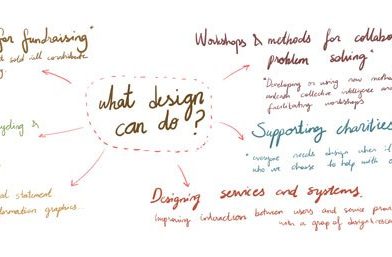 for fundraising"
sold all contribute
what design
can do?
Workshops & methods for collabo
problem solving"
"Developing or using new metho
collective intelligence and
facilitating workshops
&
Supporting charities
"everyone needs design when
who we choose to help with
statement
graphics.
Designing services and systems.
Improving interaction between users and service prov
with a grasp of design